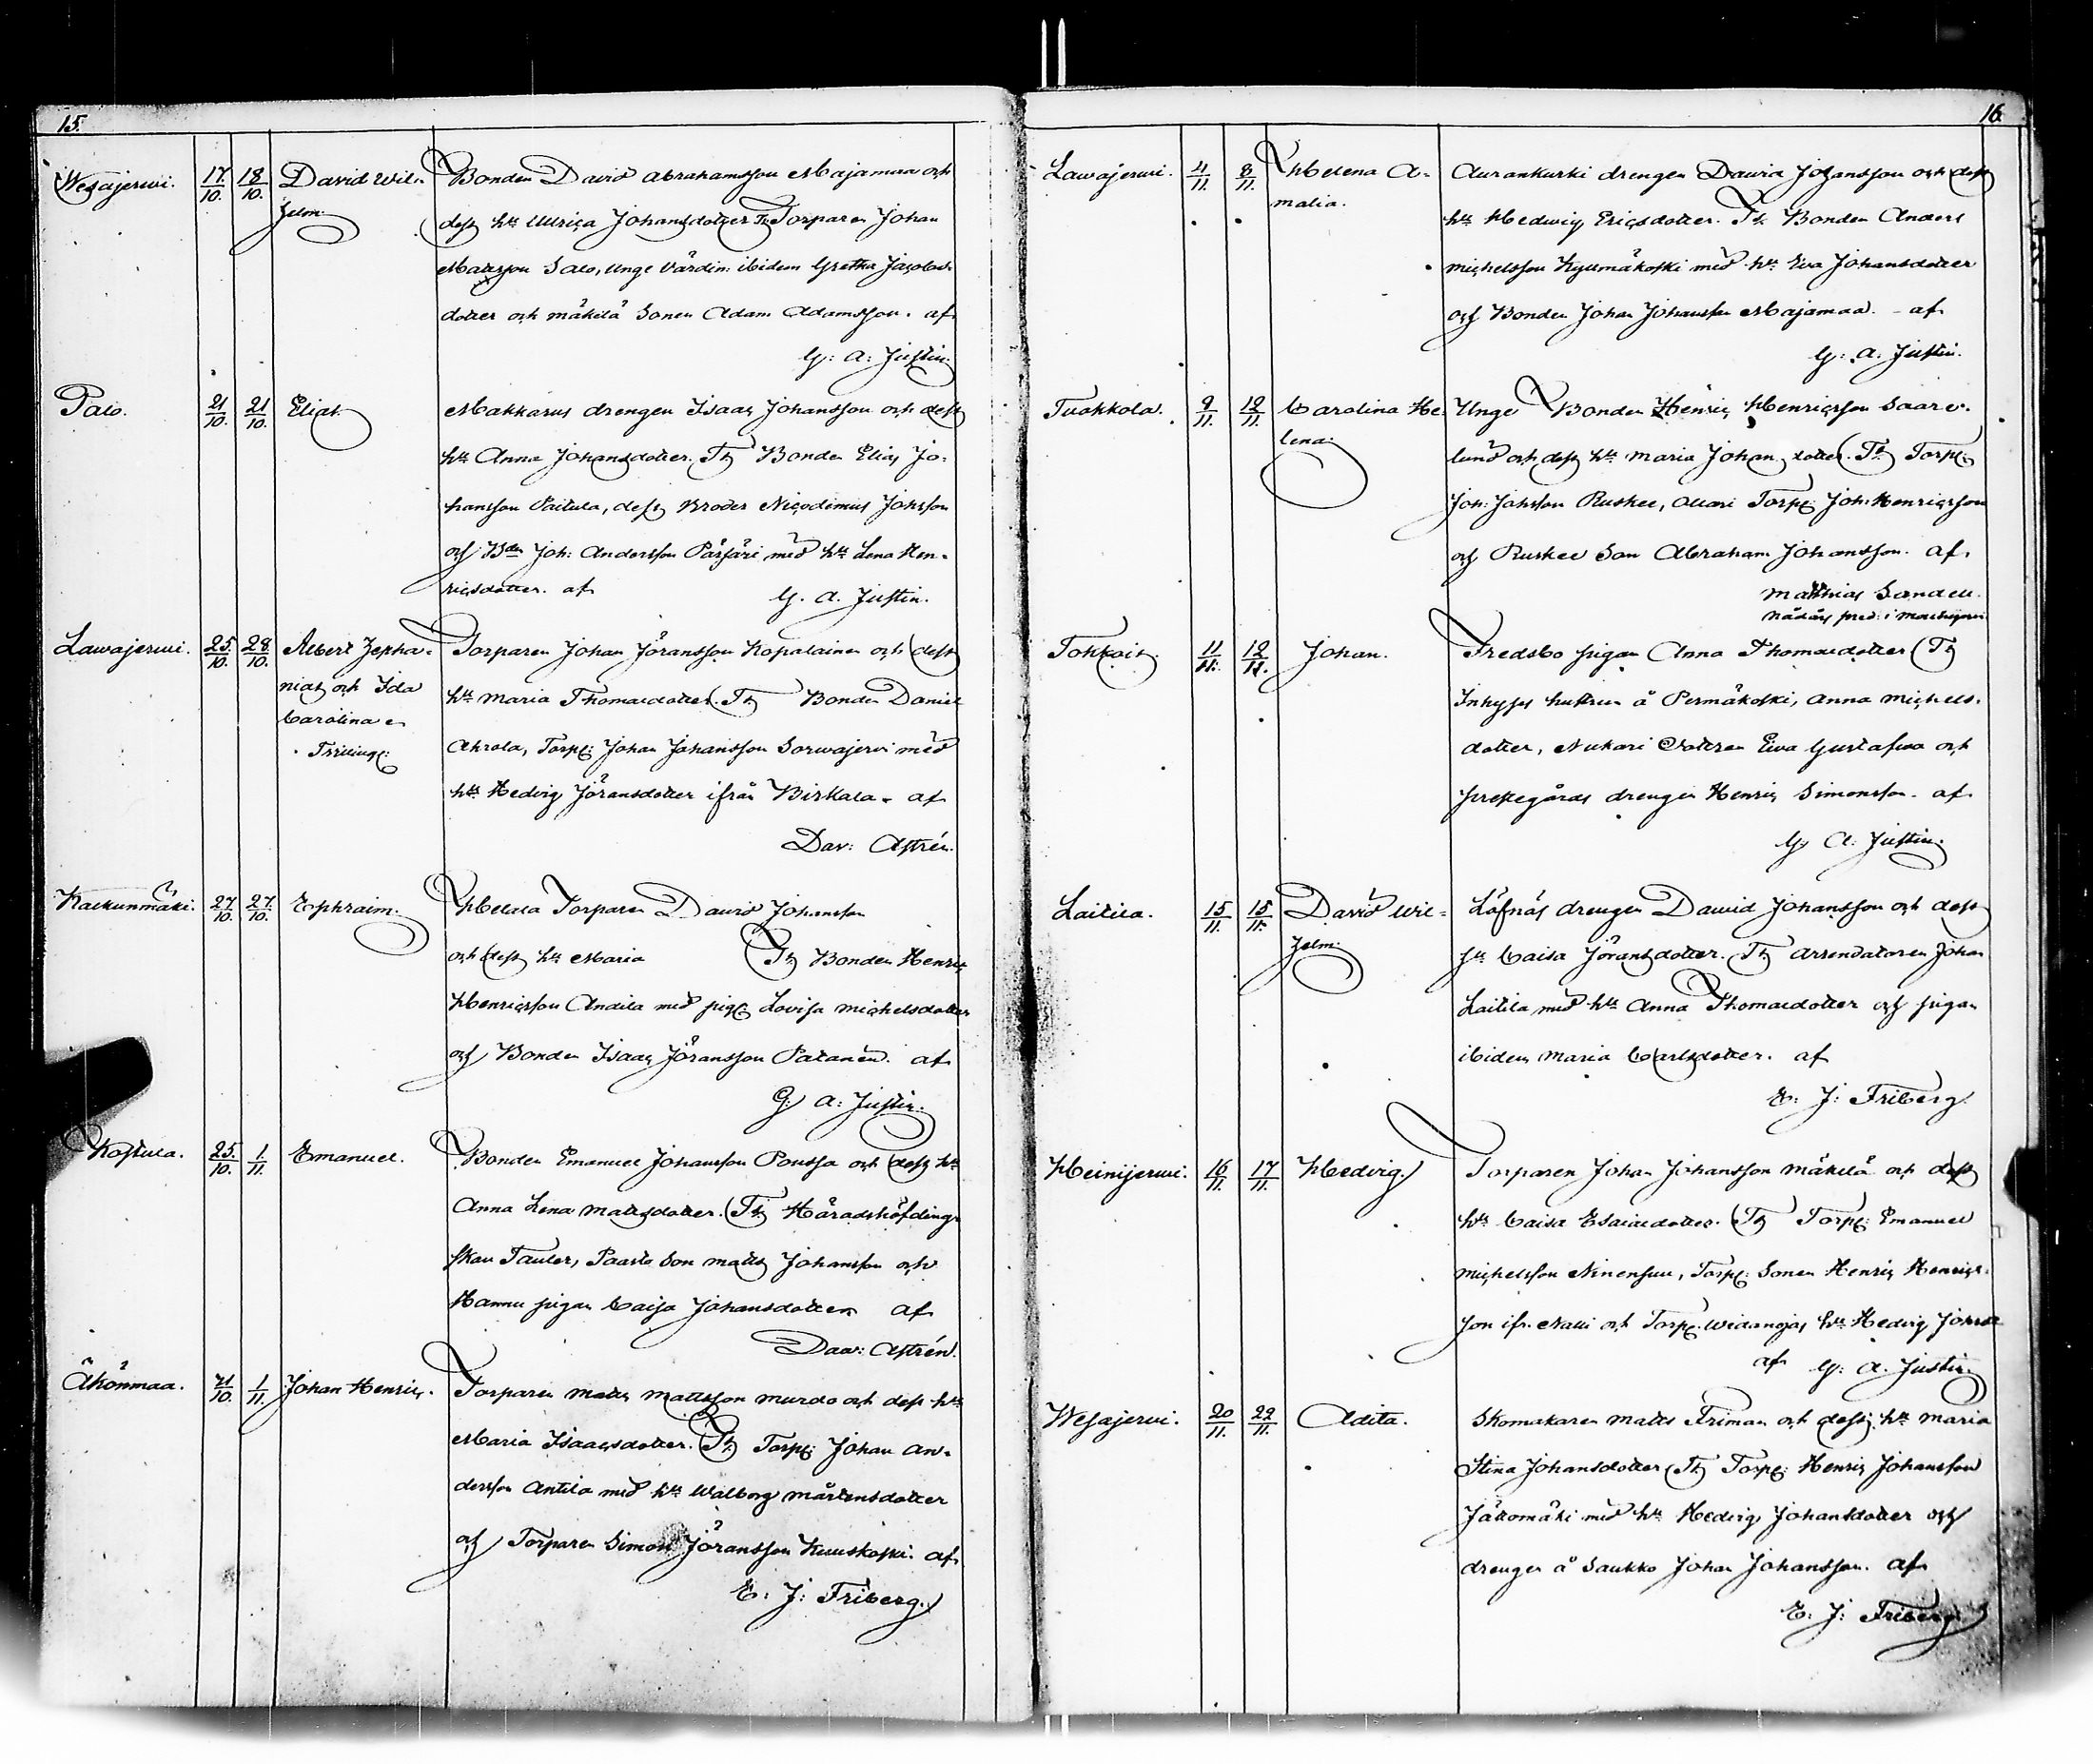 15.
Wesajerwi. 17/10. 18/10. David Wil-
helm.
Bonden David Abrahamsson Majamaa och
dess h:u Ulrica Johansdotter T: Torparen Johan
Mattsson Salo, Unge Värdin: ibidem Gretha Jacobs-
dotter och Mäkelä Sonen Adam Adamsson. af
G: A: Justin.
Palo. 21/10. 21/10. Elias.
Makkarus drengen Isaac Johansson och dess
h:u Anna Johansdotter. T: Bonden Elias Jo-
hansson Paitula, dess Broder Nicodemus Johsson
och B:den Joh: Andersson Pärjäri med h:u Lena Hen-
ricsdotter. af G. A. Justin.
Lawajerwi. 25/10. 28/10. Albert Zepha-
nias och Ida
Carolina e
Trilling:
Torparen Johan Jöransson Kopalainen och dess
h:u Maria Thomasdotter. T: Bonden Daniel
Ahrola, Torp: Johan Johansson Sorwajerwi med
h:u Hedvig Jöransdotter ifrån Birkala. af
Dav: Astrén.
Kalkunmäki. 27/10. 27/10. Ephraim.
Melala Torparen David Johansson
och dess h:u Maria T: Bonden Henric
Henricsson Andila med pig: Lovisa Michelsdotter
och Bonden Isaac Jöransson Palanen. af
G: A: Justin.
Koskula. 25/10. 1/11. Emanuel.
Bonden Emanuel Johansson Poussa och dess h:u
Anna Lena Mattsdotter. T: Häradshöfding-
skan Tauler, Paasto Son Matts Johansson och
Hannu pigan Caisa Johansdotter af
Dav: Astrén.
Äkönmaa. 21/10. 1/11. Johan Henric.
Torparen Matts Mattsson Murdo och dess h:u
Maria Isaacsdotter. T: Torp: Johan An-
dersson Antila med h:u Walborg Mårtensdotter
och Torparen Simon Jöransson Kuuskoski. af
E. J: Friberg.
16.
Lawajerwi. 4/11. 8/11. Helena A-
malia.
Aurankurki drengen David Johansson och dess
h:u Hedwig Ericsdotter. T: Bonden Anders
Michelsson Kyllmäkoski med h:u Eva Johansdotter
och Bonden Johan Johansson Majamaa. af
G: A: Justin.
Tuokkola. 9/11. 12/11. Carolina He-
lena.
Unge Bonden Henric Henricsson Saare-
lund och dess h:u Maria Johansdotter. T: Torp:
Joh: Johsson Ruskee, Torp: Joh: Henricsson
och Ruskee Son Abraham Johansson. af
Matthias Sandell.
Nådårs pred: i
Tokkois. 11/11. 12/11. Johan.
Fredsbo pigan Anna Thomasdotter T:
Inhyses hustrun å Permäkoski, Anna Michels-
dotter, Nukari Dottren Eva Gustafwa och
prestegårds drengen Henric Simonsson. af
G: A: Justin.
Laitila. 15/11. 15/11. David Wil-
helm.
Löfnäs drengen David Johansson och dess
h:u Caisa Jöransdotter. T: Arrendatoren Johan
Laitila med h:u Anna Thomasdotter och pigan
ibidem Maria Carlsdotter. af
E: J: Friberg.
Heinijerwi. 16/11. 17/11. Hedvig.
Torparen Johan Johansson Mäkelä och dess
h:u Caisa Esaiaedotter. T: Torp: Emanuel
Michelsson Ninensuu, Torp: Sonen Henric Henrics-
son ifr. Nalli och Torp: Widangojas h:u Hedvig
af G: A: Justin.
Wesajerwi. 20/11. 22/11. Adita.
Skomakaren Matts Friman och dess h:u Maria
Stina Johansdotter T: Torp: Henric Johansson
Jäkomäki med h:u Hedvig Johansdotter och
drengen å Saukko Johan Johansson. af
E: J: Friberg.